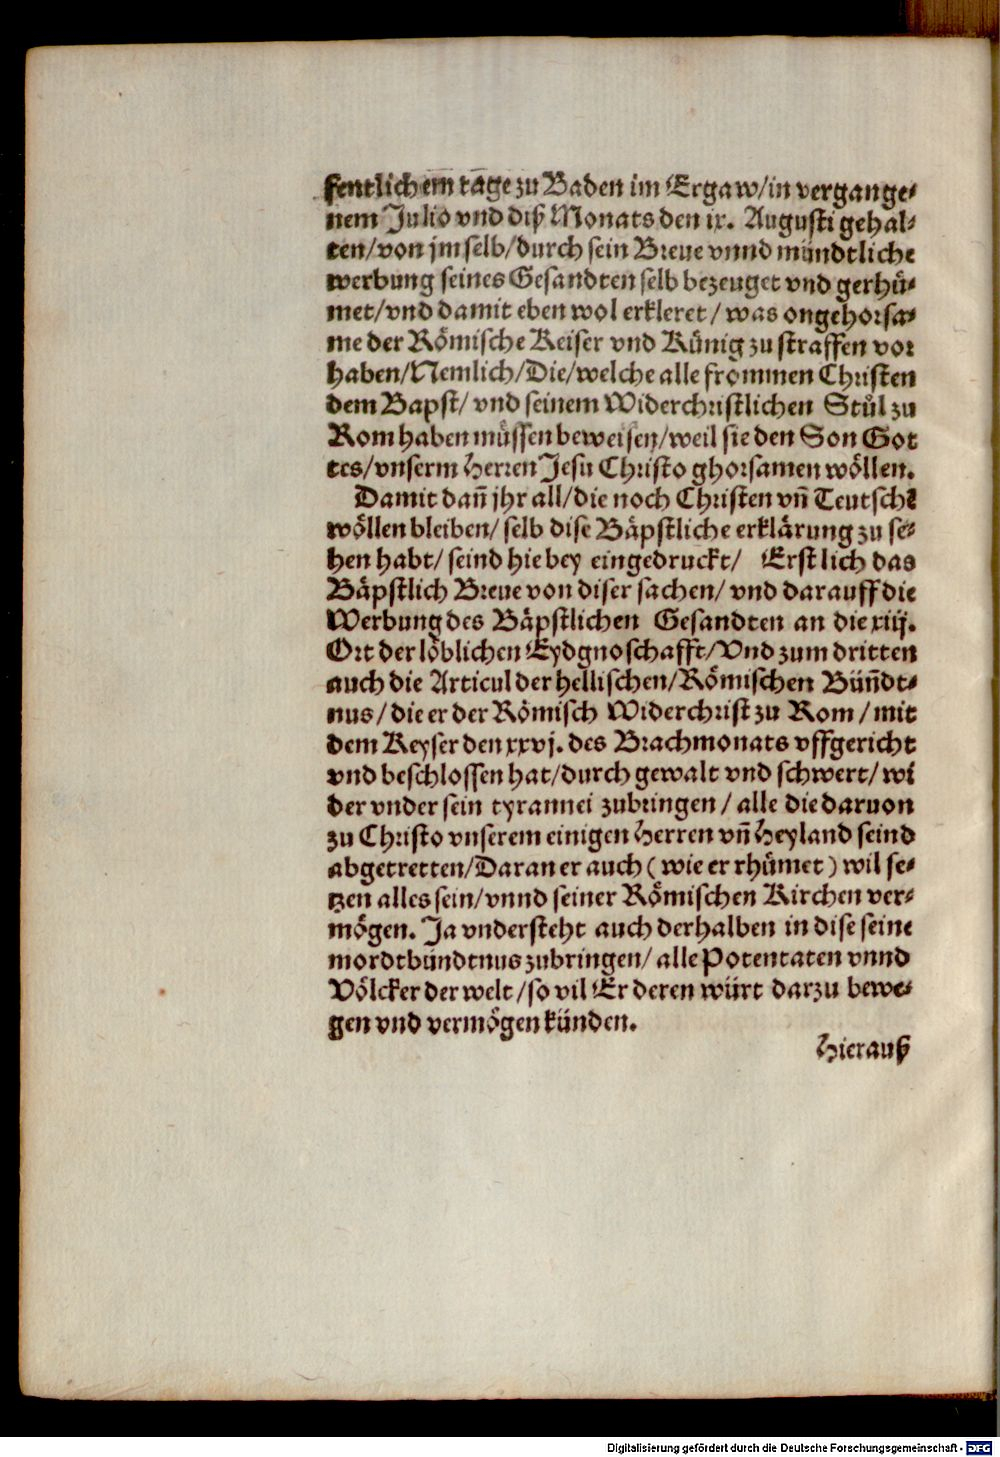 fentlichem tage zu Baden im Ergaw/in vergange-
nem Julio vnd diß Monats den ix. Augusti gehal-
ten/von jm selb/durch sein Breue vnnd mündtliche
werbung seines Gesandten selb bezeuget vnd gerhü-
met/vnd damit eben wol erkleret/was ongehorsa-
me der Römische Keiser vnd Künig zu straffen vor
haben/Nemlich/Die/welche alle frommen Christen
dem Bapst/vnd seinem Widerchristlichen Stůl zu
Rom haben müssen beweisen/weil sie den Son Got
tes/vnserm Herren Jesu Christo ghorsamen wöllen.
Damit dañ jhr all/die noch Christen vñ Teutsche
wöllen bleiben/selb dise Bäpstliche erklärung zu se-
hen habt/seind hie bey eingedruckt/ Erstlich das
Bäpstlich Breue von diser sachen/vnd darauff die
Werbung des Bäpstlichen Gesandten an die xiij.
Ort der löblichen Eydgnoschafft/Vnd zum dritten
auch die Articul der hellischen/Römischen Büñdt-
nus/die er der Römisch Widerchrist zu Rom/mit
dem Keyser den xxvj. des Brachmonats vffgericht
vnd beschlossen hat/durch gewalt vnd schwert/wi
der vnder sein tyrannei zubringen/alle die daruon
zu Christo vnserem einigen Herren vñ Heyland seind
abgetretten/Daran er auch (wie er rhümet) wil se-
tzen alles sein/vnnd seiner Römischen Kirchen ver-
mögen. Ja vndersteht auch derhalben in dise seine
mordtbündtnus zubringen/alle Potentaten vnnd
Völcker der welt/so vil Er deren würt darzu bewe-
gen vnd vermögen künden.
Hierauß
Digitalisierung gefördert durch die Deutsche Forschungsgemeinschaft - DFG